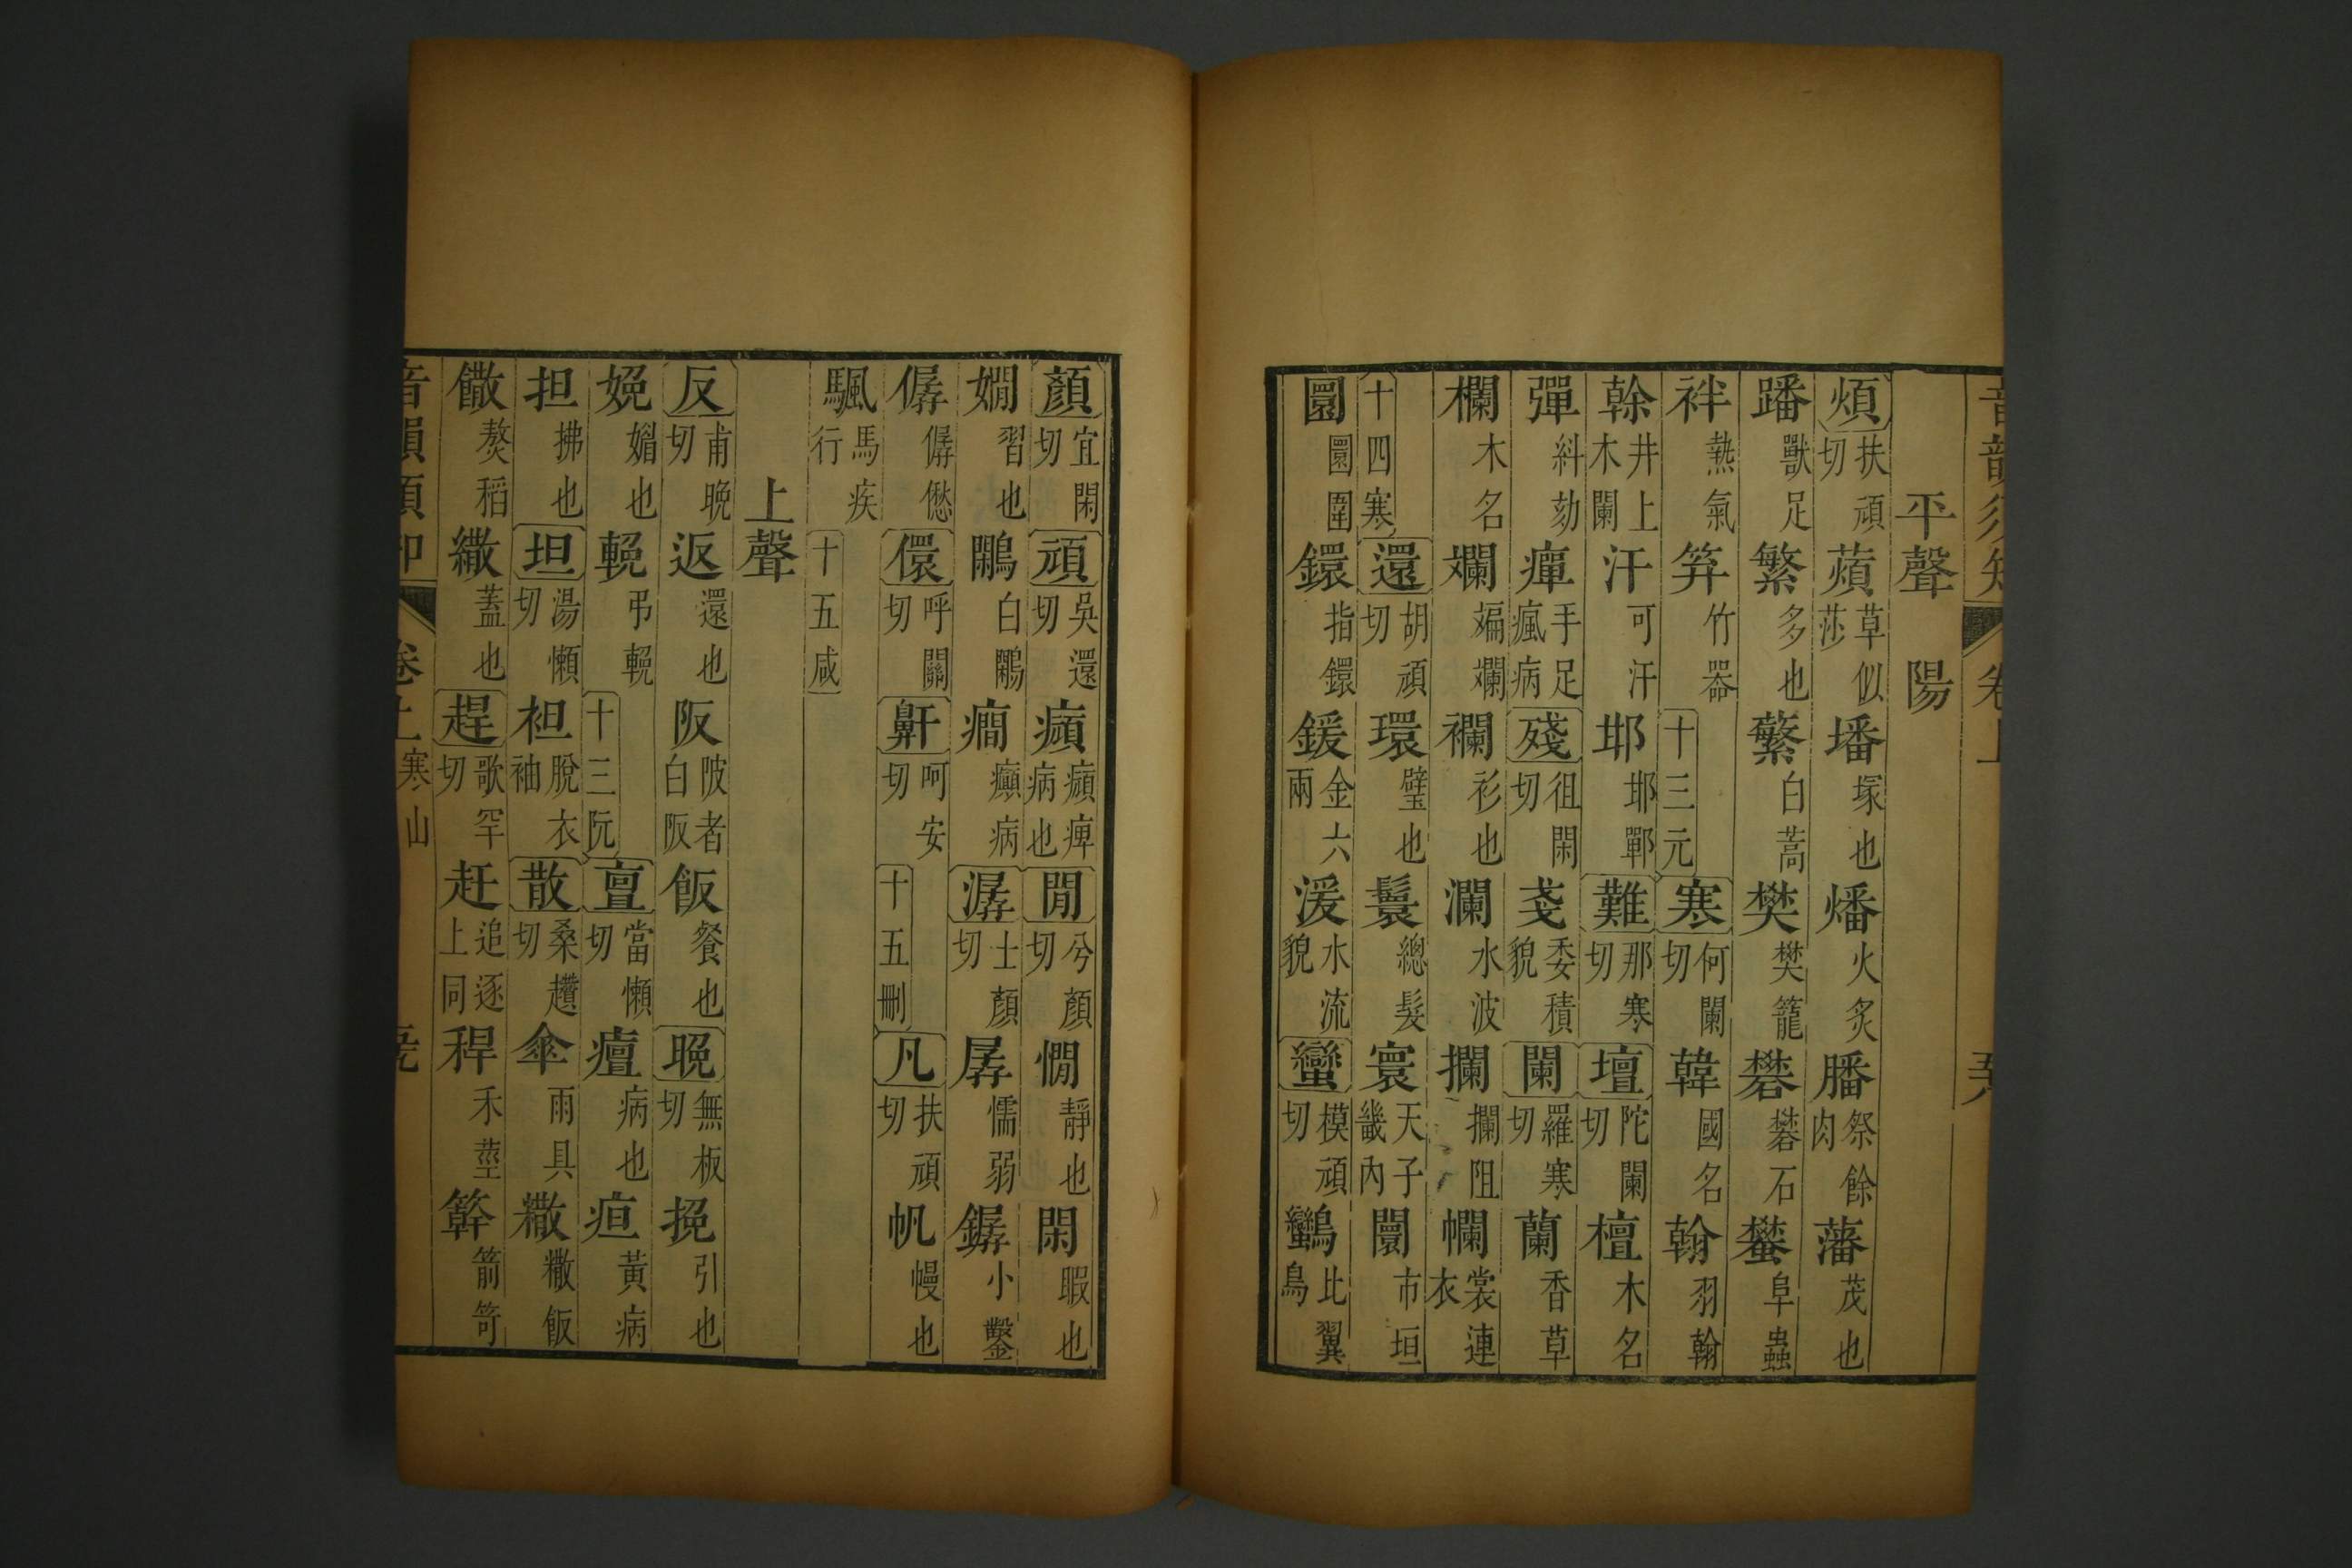 音韻須知
卷上
平聲　陽
煩扶頑切蘋草似莎墦塚也燔火炙膰祭餘肉藩茂也
蹯獸足繁多也蘩白蒿樊樊籠礬礬石蠜阜蟲
袢熱氣笲竹器十三元寒何闌切韓國名翰羽翰
榦井上木闌汗可汗邯邯鄲難那寒切壇陀闌切檀木名
彈糾劾癉手足瘋病殘徂閑切戔委積貌闌羅寒切蘭香草
欄木名斕斒斕襴衫也瀾水波攔攔阻幱裳連衣
十四寒還胡頑切環璧也鬟總髮寰天子畿內闤市垣
圜圜圍鐶指鐶鍰金六兩湲水流貌蠻模頑切鸞比翼鳥
顏宜閑切頑吳還切癏癏痺病也閒兮顏切憪靜也閑暇也
嫺習也鷴白鷴癇癲病潺士顏切孱懦弱鏟小鑿
僝僝僽儇呼關切鼾呵安切十五刪凡扶頑切帆幔也
颿馬疾行十五咸
上聲
反甫晚切返還也阪陂者白阪飯餐也晚無板切挽引也
娩媚也輓弔輓十三阮亶當懶切癉病也疸黃病
担拂也坦湯懶切袒脫衣袖散桑趲切傘雨具糤糤飯
饊熬稻繖蓋也趕歌罕切赶追逐上同稈禾莖簳箭笴
音韻須知
卷上寒山